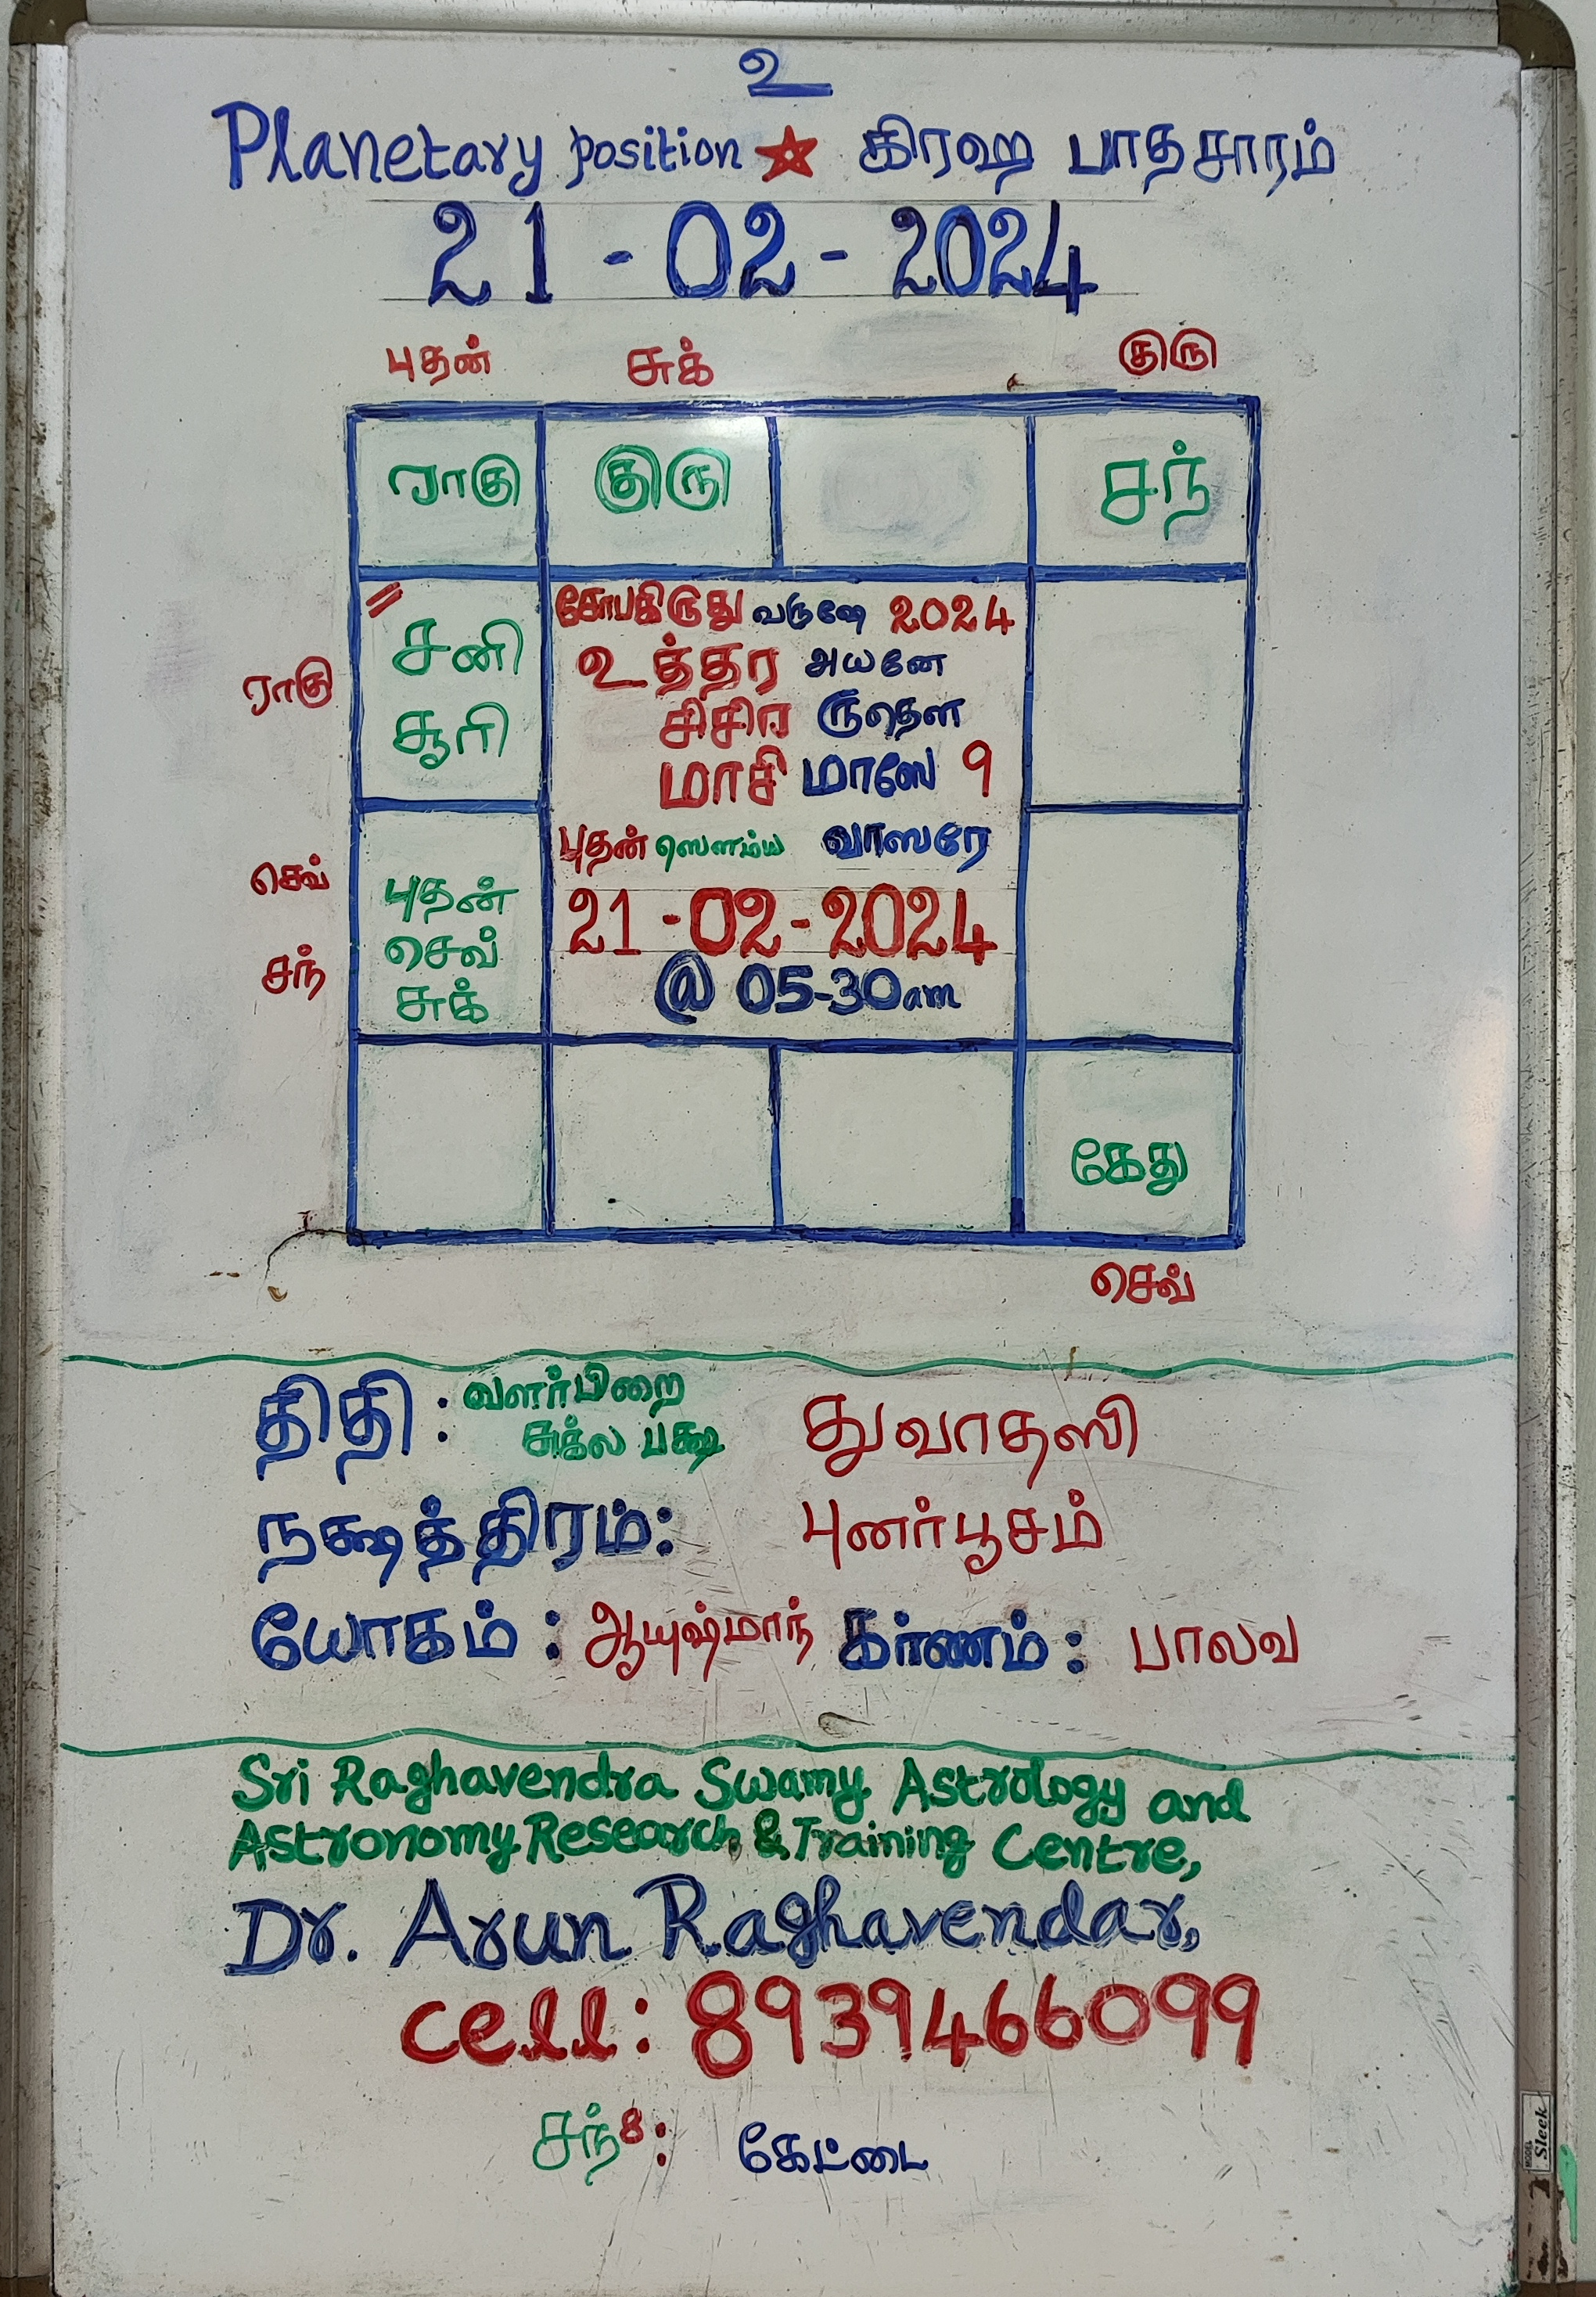 உ
Planetary position ☆ கிரஹ பாதசாரம்
21-02-2024
புதன் சுக் குரு
ராகு குரு சந்
சனி
சூரி
ராகு
புதன்
செவ்
சுக்
செவ்
சந்
சோபகிருது வருஷே 2024
உத்தர அயனே
சிசிர ருதௌ
மாசி மாஸே 9
புதன் ஸௌம்ய வாஸரே
21-02-2024
@ 05-30am
கேது
செவ்
திதி : வளர்பிறை
சுக்ல பக்ஷ துவாதஸி
நக்ஷத்திரம்: புனர்பூசம்
யோகம் : ஆயுஷ்மாந் கர்ணம் : பாலவ
Sri Raghavendra Swamy Astrology and
Astronomy Research & Training Centre,
Dr. Arun Raghavendar,
cell: 8939466099
சந் 8 : கேட்டை
MODEL
Sleek